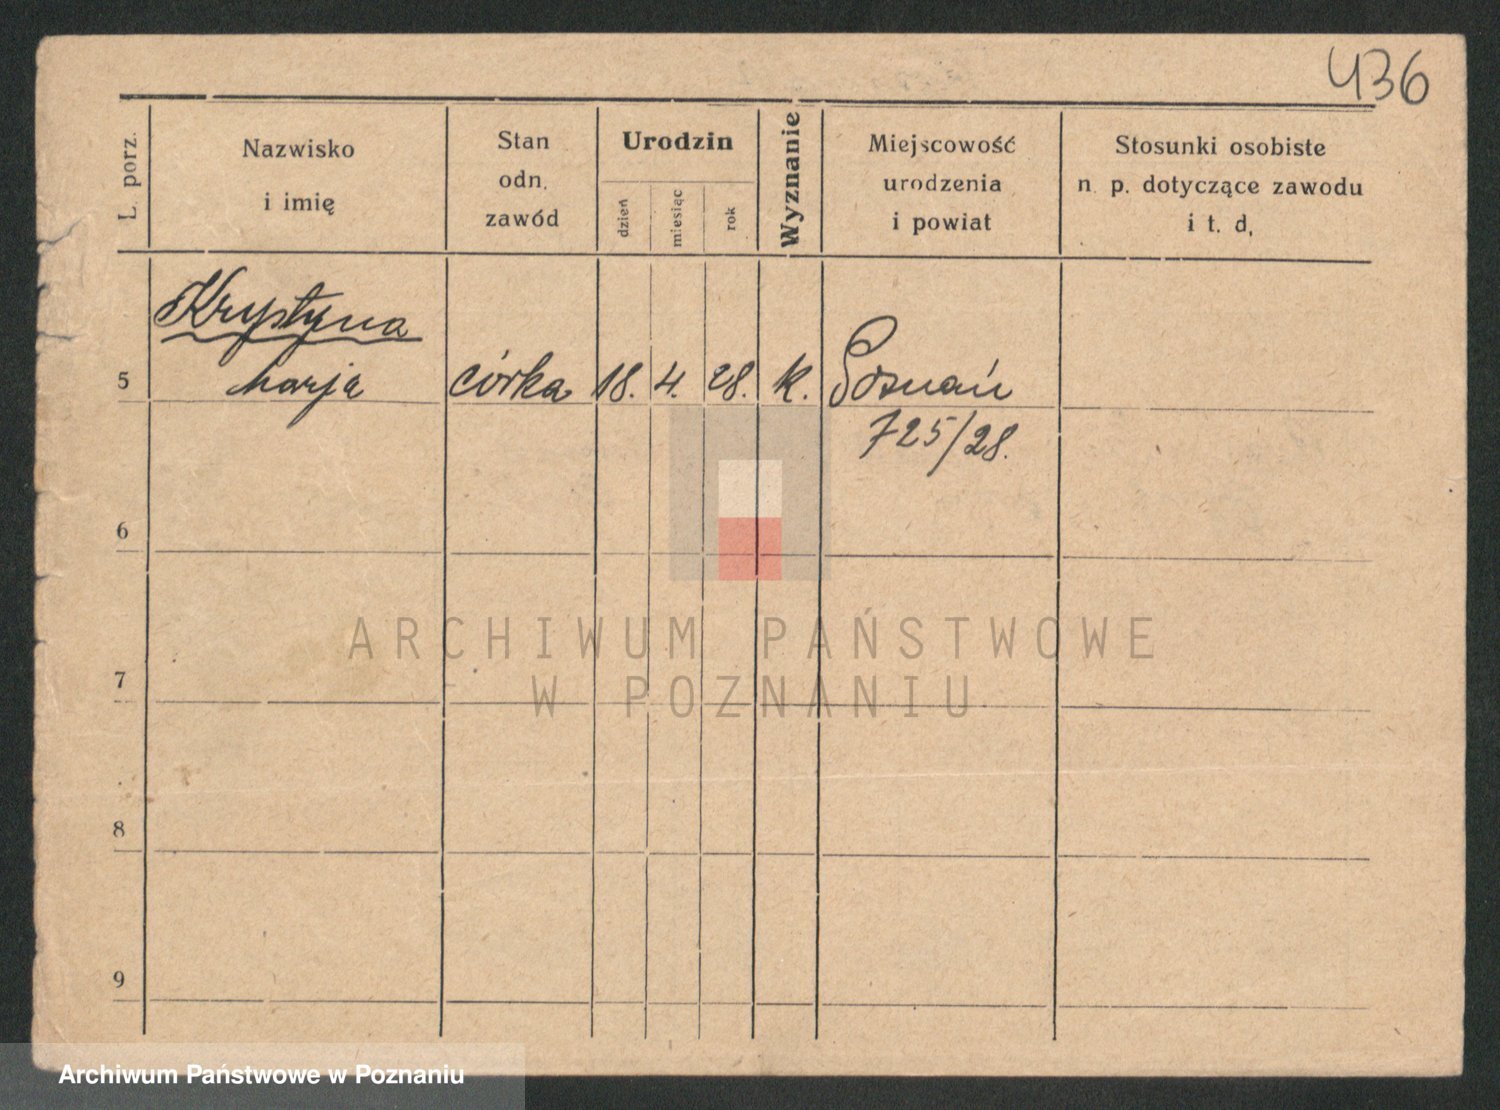 436
L. porz.
Nazwisko
i imię
Stan
odn.
zawód
Urodzin
dzień
miesiąc
rok
Wyznanie
Miejscowość
urodzenia
i powiat
Stosunki osobiste
n. p. dotyczące zawodu
i t. d.
Krystyna
5 Marja córka 18. 4. 28. k. Poznań
725/28.
6
7
8
9
ARCHIWUM PAŃSTWOWE
W POZNANIU
Archiwum Państwowe w Poznaniu